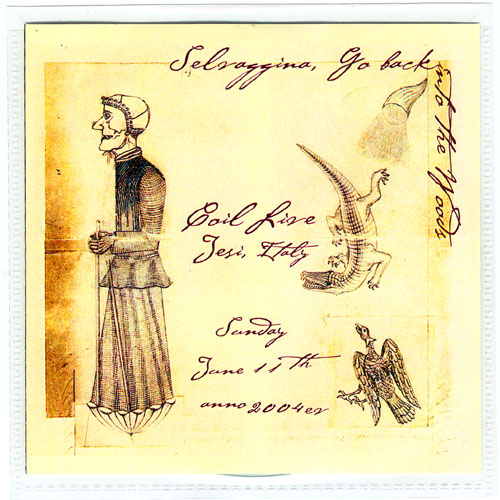 Selvaggina, Go back
into the Woods
Coil Live
Jesi, Italy
Sunday
June 11th
anno 2004ev